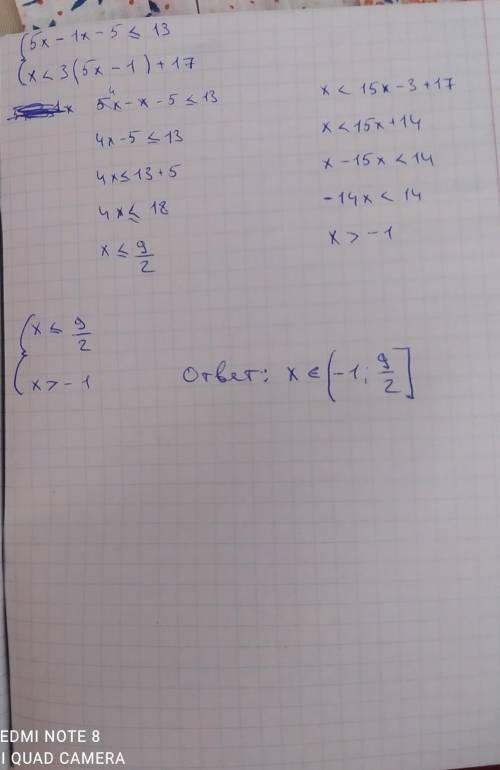 { 5x - 1x - 5 ≤ 13
{ x < 3(5x - 1) + 17
5x - x - 5 ≤ 13
4x - 5 ≤ 13
4x ≤ 13 + 5
4x ≤ 18
x ≤ 9/2
x < 15x - 3 + 17
x < 15x + 14
x - 15x < 14
-14x < 14
x > -1
{ x ≤ 9/2
{ x > -1
Ответ: x ∈ (-1; 9/2]
EDMI NOTE 8
I QUAD CAMERA